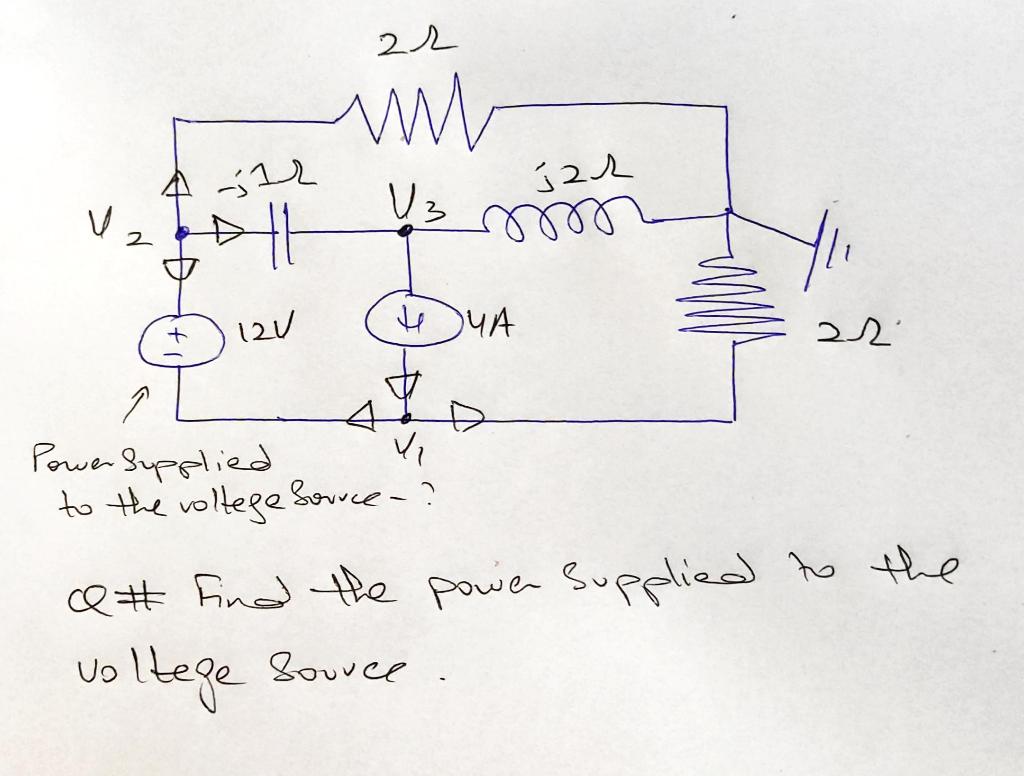 2Ω
-j1Ω
j2Ω
V2
V3
12V
4A
2Ω
V1
Power Supplied
to the voltege Source - ?
Q# Find the power Supplied to the
voltege Source .